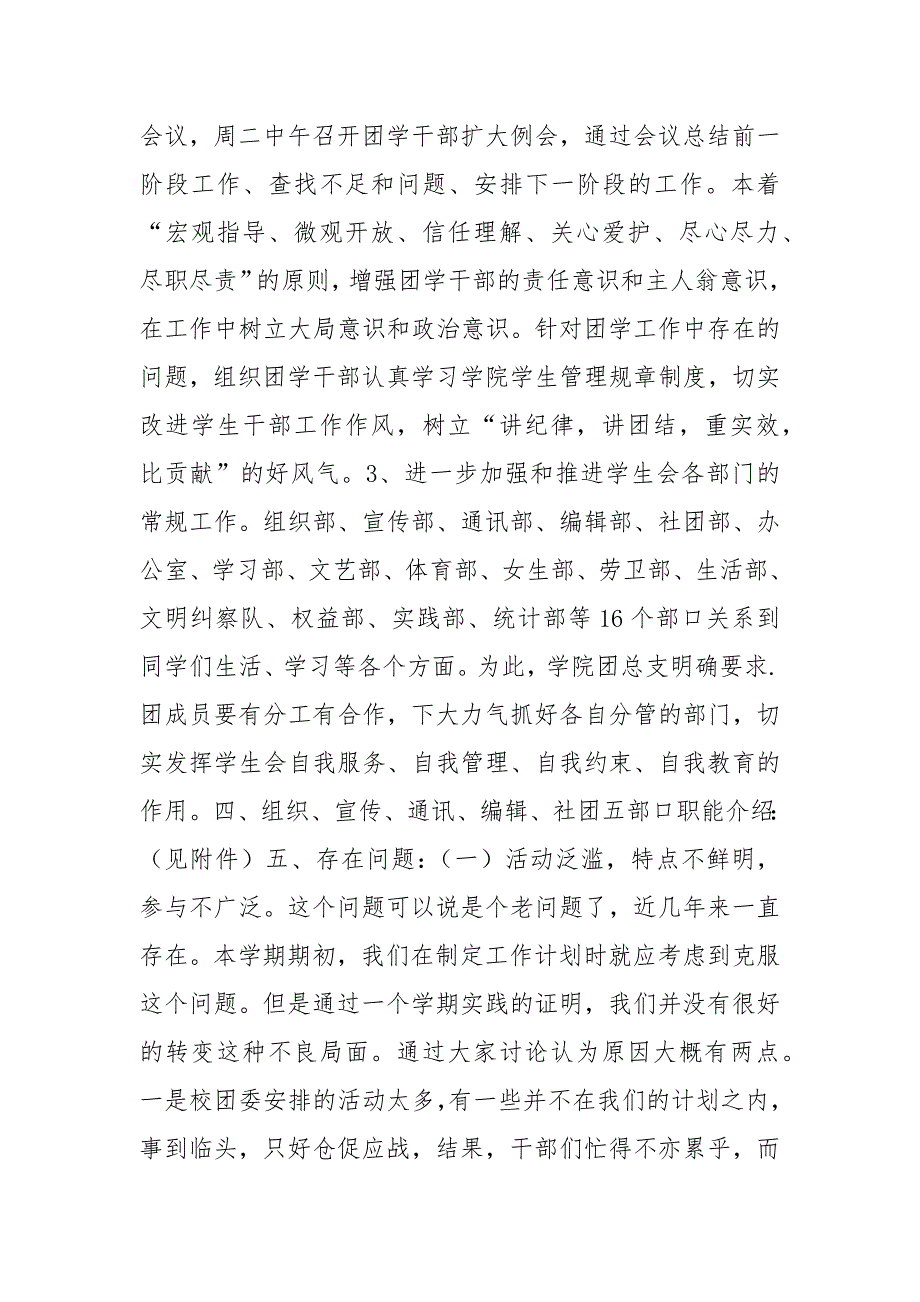 会议，周二中午召开团学干部扩大例会，通过会议总结前一
阶段工作、查找不足和问题、安排下一阶段的工作。本着
“宏观指导、微观开放、信任理解、关心爱护、尽心尽力、
尽职尽责”的原则，增强团学干部的责任意识和主人翁意识，
在工作中树立大局意识和政治意识。针对团学工作中存在的
问题，组织团学干部认真学习学院学生管理规章制度，切实
改进学生干部工作作风，树立“讲纪律，讲团结，重实效，
比贡献”的好风气。3、进一步加强和推进学生会各部门的
常规工作。组织部、宣传部、通讯部、编辑部、社团部、办
公室、学习部、文艺部、体育部、女生部、劳卫部、生活部、
文明纠察队、权益部、实践部、统计部等 16 个部口关系到
同学们生活、学习等各个方面。为此，学院团总支明确要求.
团成员要有分工有合作，下大力气抓好各自分管的部门，切
实发挥学生会自我服务、自我管理、自我约束、自我教育的
作用。四、组织、宣传、通讯、编辑、社团五部口职能介绍：
（见附件）五、存在问题：（一）活动泛滥，特点不鲜明，
参与不广泛。这个问题可以说是个老问题了，近几年来一直
存在。本学期期初，我们在制定工作计划时就应考虑到克服
这个问题。但是通过一个学期实践的证明，我们并没有很好
的转变这种不良局面。通过大家讨论认为原因大概有两点。
一是校团委安排的活动太多，有一些并不在我们的计划之内，
事到临头，只好仓促应战，结果，干部们忙得不亦累乎，而